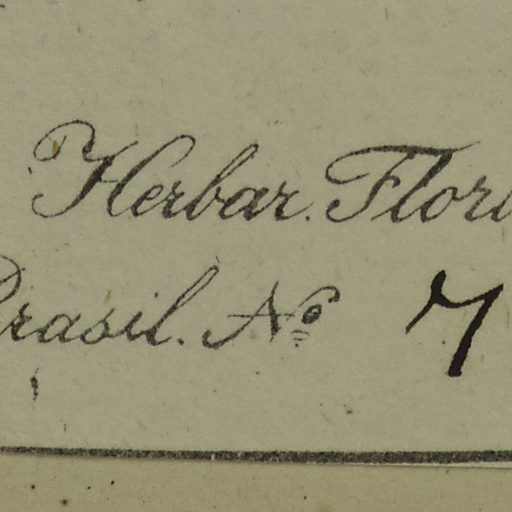 Herbar. Flori
Brasil. No 7